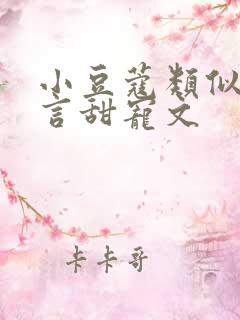 小豆蔻類似
言甜寵文
卡卡哥